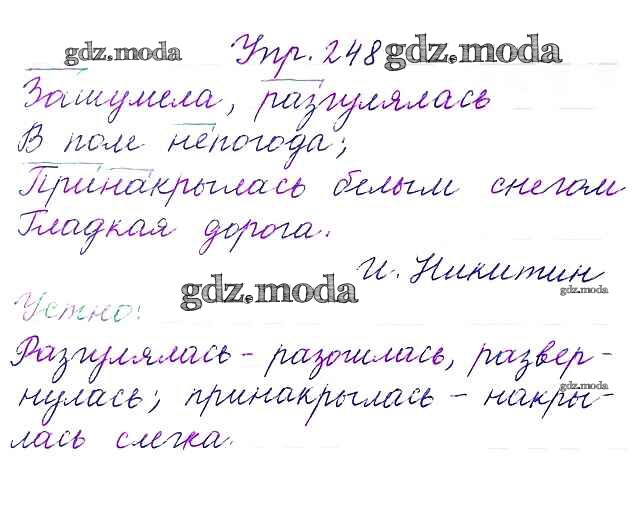 gdz.moda Упр. 248 gdz.moda
Зашумела, разгулялась
В поле непогода;
Принакрылась белым снегом
Гладкая дорога.
И. Никитин
gdz.moda gdz.moda
Устно:
Разгулялась - разошлась, развер-
gdz.moda
нулась; принакрылась - накры-
лась слегка.